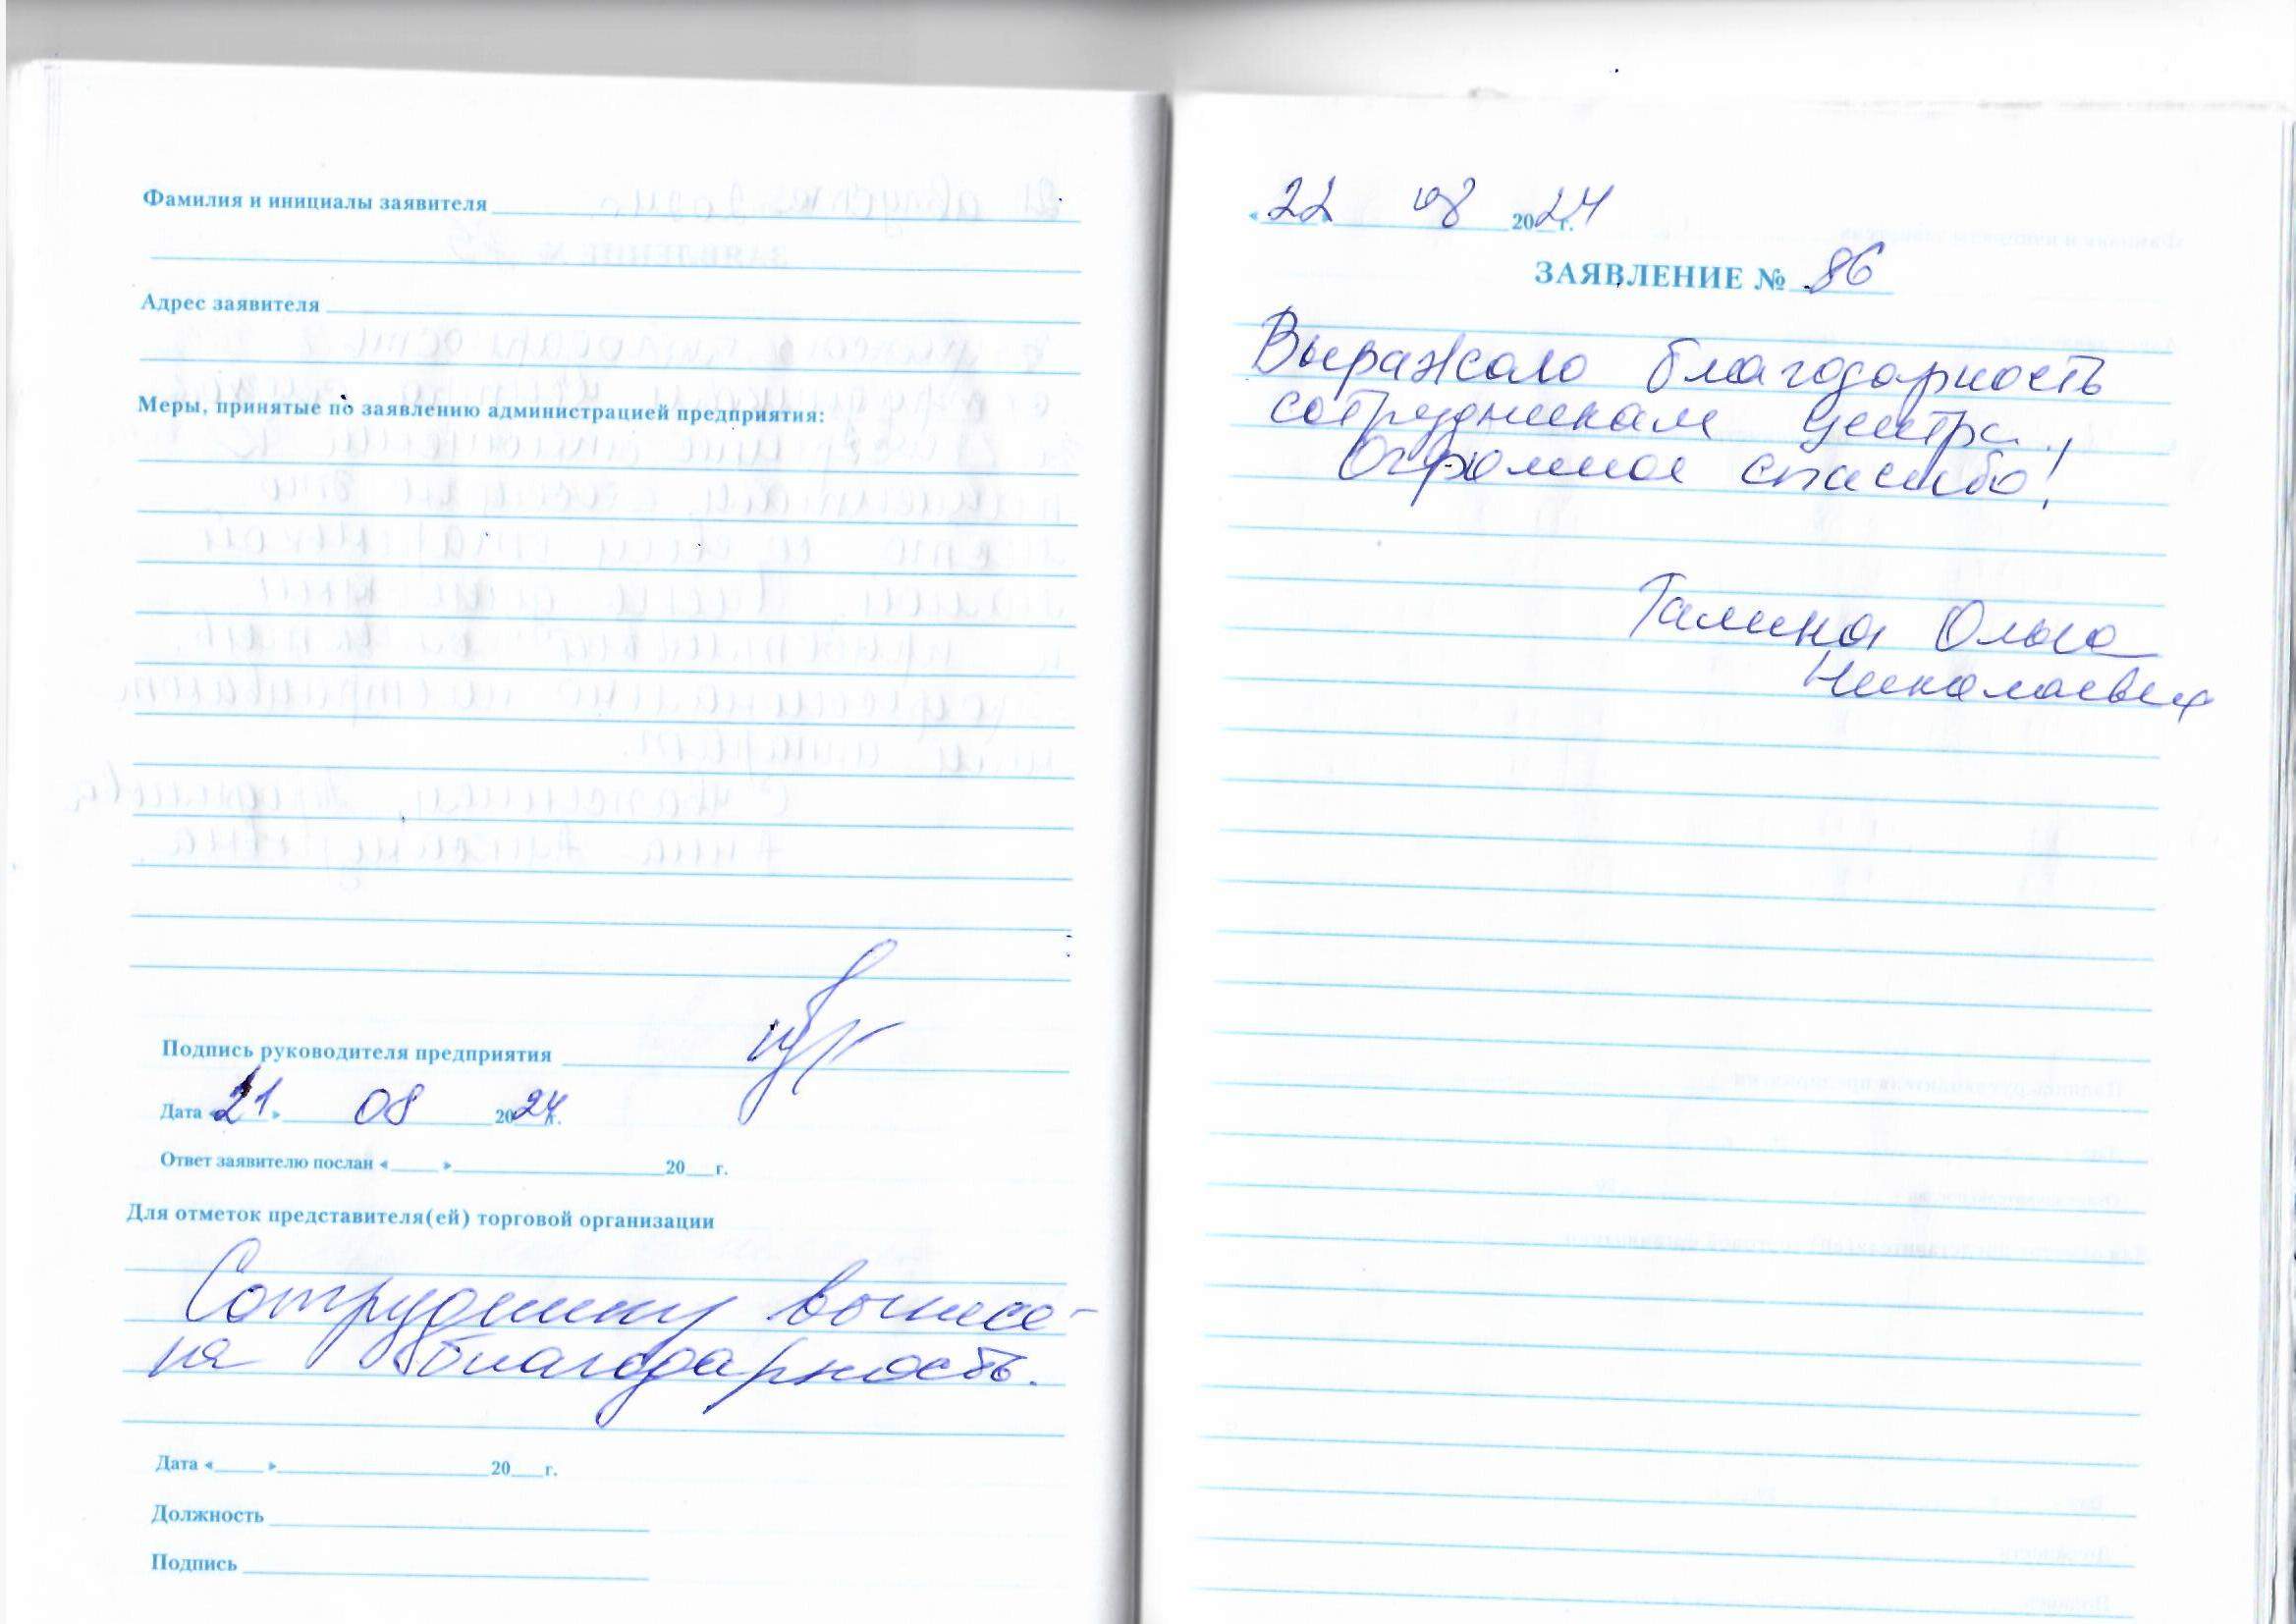 Фамилия и инициалы заявителя
Адрес заявителя
Меры, принятые по заявлению администрацией предприятия:
Подпись руководителя предприятия
Дата «21» 08 2024 г.
Ответ заявителю послан « » 20 г.
Для отметок представителя(ей) торговой организации
Сотруднику вынесе-
на благодарность.
Дата « » 20 г.
Должность
Подпись
« 22 08 2024 г.
ЗАЯВЛЕНИЕ № 86
Выражаю благодарность
сотрудникам центра.,
Огромное спасибо!
Галина Ольга
Николаевна